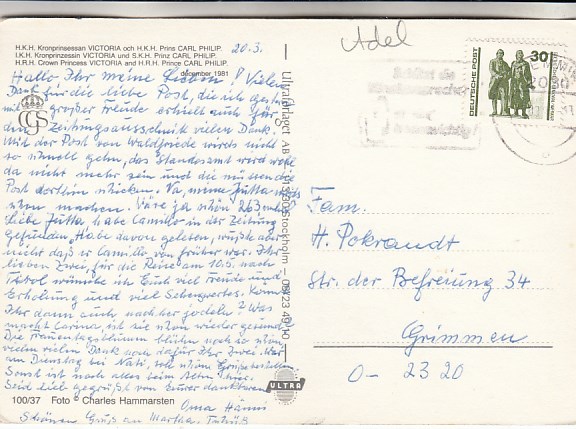 H.K.H. Kronprinsessan VICTORIA och H.K.H. Prins CARL PHILIP.
I.K.H. Kronprinzessin VICTORIA und S.K.H. Prinz CARL PHILIP.
H.R.H. Crown Princess VICTORIA and H.R.H. Prince CARL PHILIP.
december 1981
20.3.
Hallo Ihr meine Lieben! Vielen
Dank für die liebe Post, die ich gestern
mit großer Freude erhielt auch für
den Zeitungsausschnitt vielen Dank.
Mit der Post von Waldfriede wirds nicht
so schnell gehn, das Standesamt wird wohl
da nicht mehr sein und die müssen die
Post dorthin schicken. Na, meine Jutta wirds
schon machen. Wäre ja schön
Liebe Jutta habe Camillo in der Zeitung
gefunden, habe davon gelesen, wußte aber
nicht daß er Camillo von früher war. Ihr
lieben Zwei, für die Reise am 10.5. nach
Tirol wünsche ich Euch viel Freude und
Erholung und viel Sehenswertes. Könnt
Ihr dann auch nachher jodeln? Was
macht Carina, ist sie schon wieder gesund?
Die Frauentagsblumen blühen noch so schön
vielen vielen Dank noch dafür Ihr Zwei. War
am Dienstag bei
Sonst ist noch alles beim Alten
Seid lieb gegrüßt von Eurer dankbaren
Oma Hänni
Schönen Gruß an Martha,
100/37 Foto © Charles Hammarsten
Ultraförlaget AB
Stockholm
ULTRA
CGS
Adel
DEUTSCHE POST
30
Fam.
H. Pokrandt
Str. der Befreiung 34
Grimmen
O - 2320